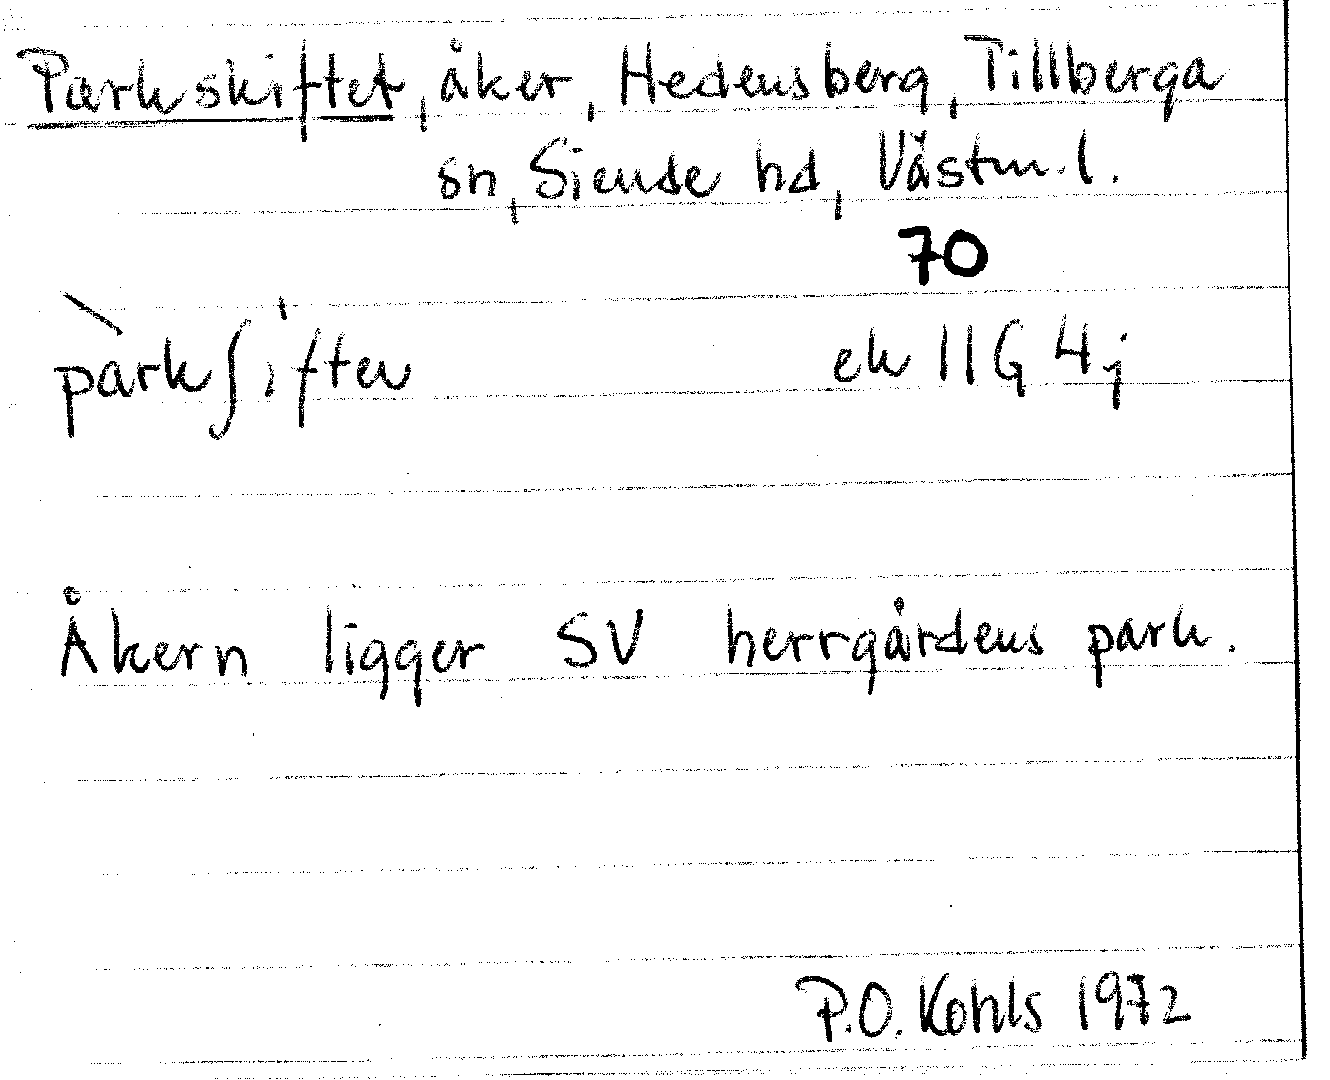 Parkskiftet, åker, Hedensberg, Tillberga
sn, Siende hd, Västm.l.
70
̀parkʃiften ek 11G 4j
Åkern ligger SV herrgårdens park.
P.O. Kohls 1972